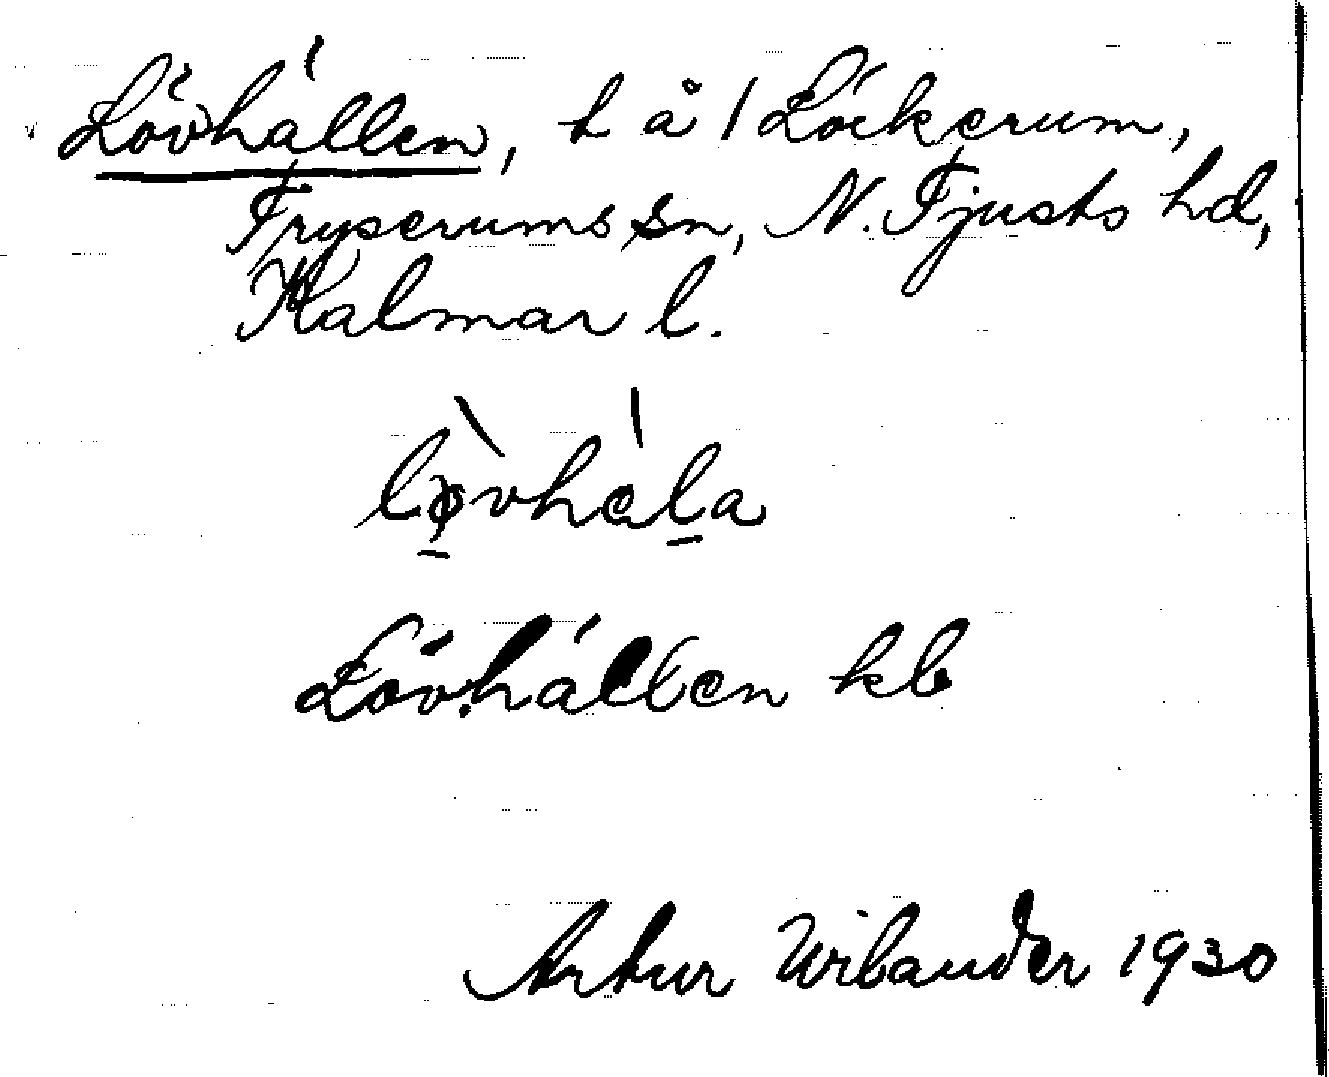 Lövhállen, t å / Löckerum,
Fryserums sn, N. Tjusts hd,
Kalmar l.
lø̀vhála
Lövhállen kb
Artur Wilander 1930